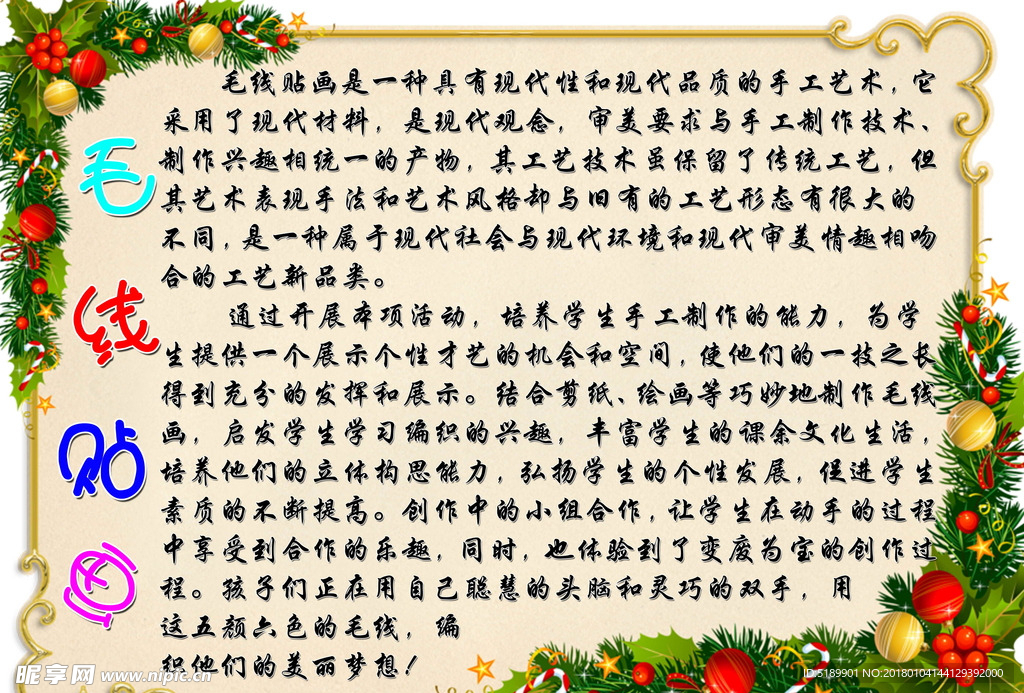 毛
线
贴
画
毛线贴画是一种具有现代性和现代品质的手工艺术，它
采用了现代材料，是现代观念，审美要求与手工制作技术、
制作兴趣相统一的产物，其工艺技术虽保留了传统工艺，但
其艺术表现手法和艺术风格却与旧有的工艺形态有很大的
不同，是一种属于现代社会与现代环境和现代审美情趣相吻
合的工艺新品类。
通过开展本项活动，培养学生手工制作的能力，为学
生提供一个展示个性才艺的机会和空间，使他们的一枝之长
得到充分的发挥和展示。结合剪纸、绘画等巧妙地制作毛线
画，启发学生学习编织的兴趣，丰富学生的课余文化生活，
培养他们的立体构思能力，弘扬学生的个性发展，促进学生
素质的不断提高。创作中的小组合作，让学生在动手的过程
中享受到合作的乐趣，同时，也体验到了变废为宝的创作过
程。孩子们正在用自己聪慧的头脑和灵巧的双手，用
这五颜六色的毛线，编
织他们的美丽梦想！
昵享网 www.nipic.cn
ID:5189901 NO:20180104144129392000